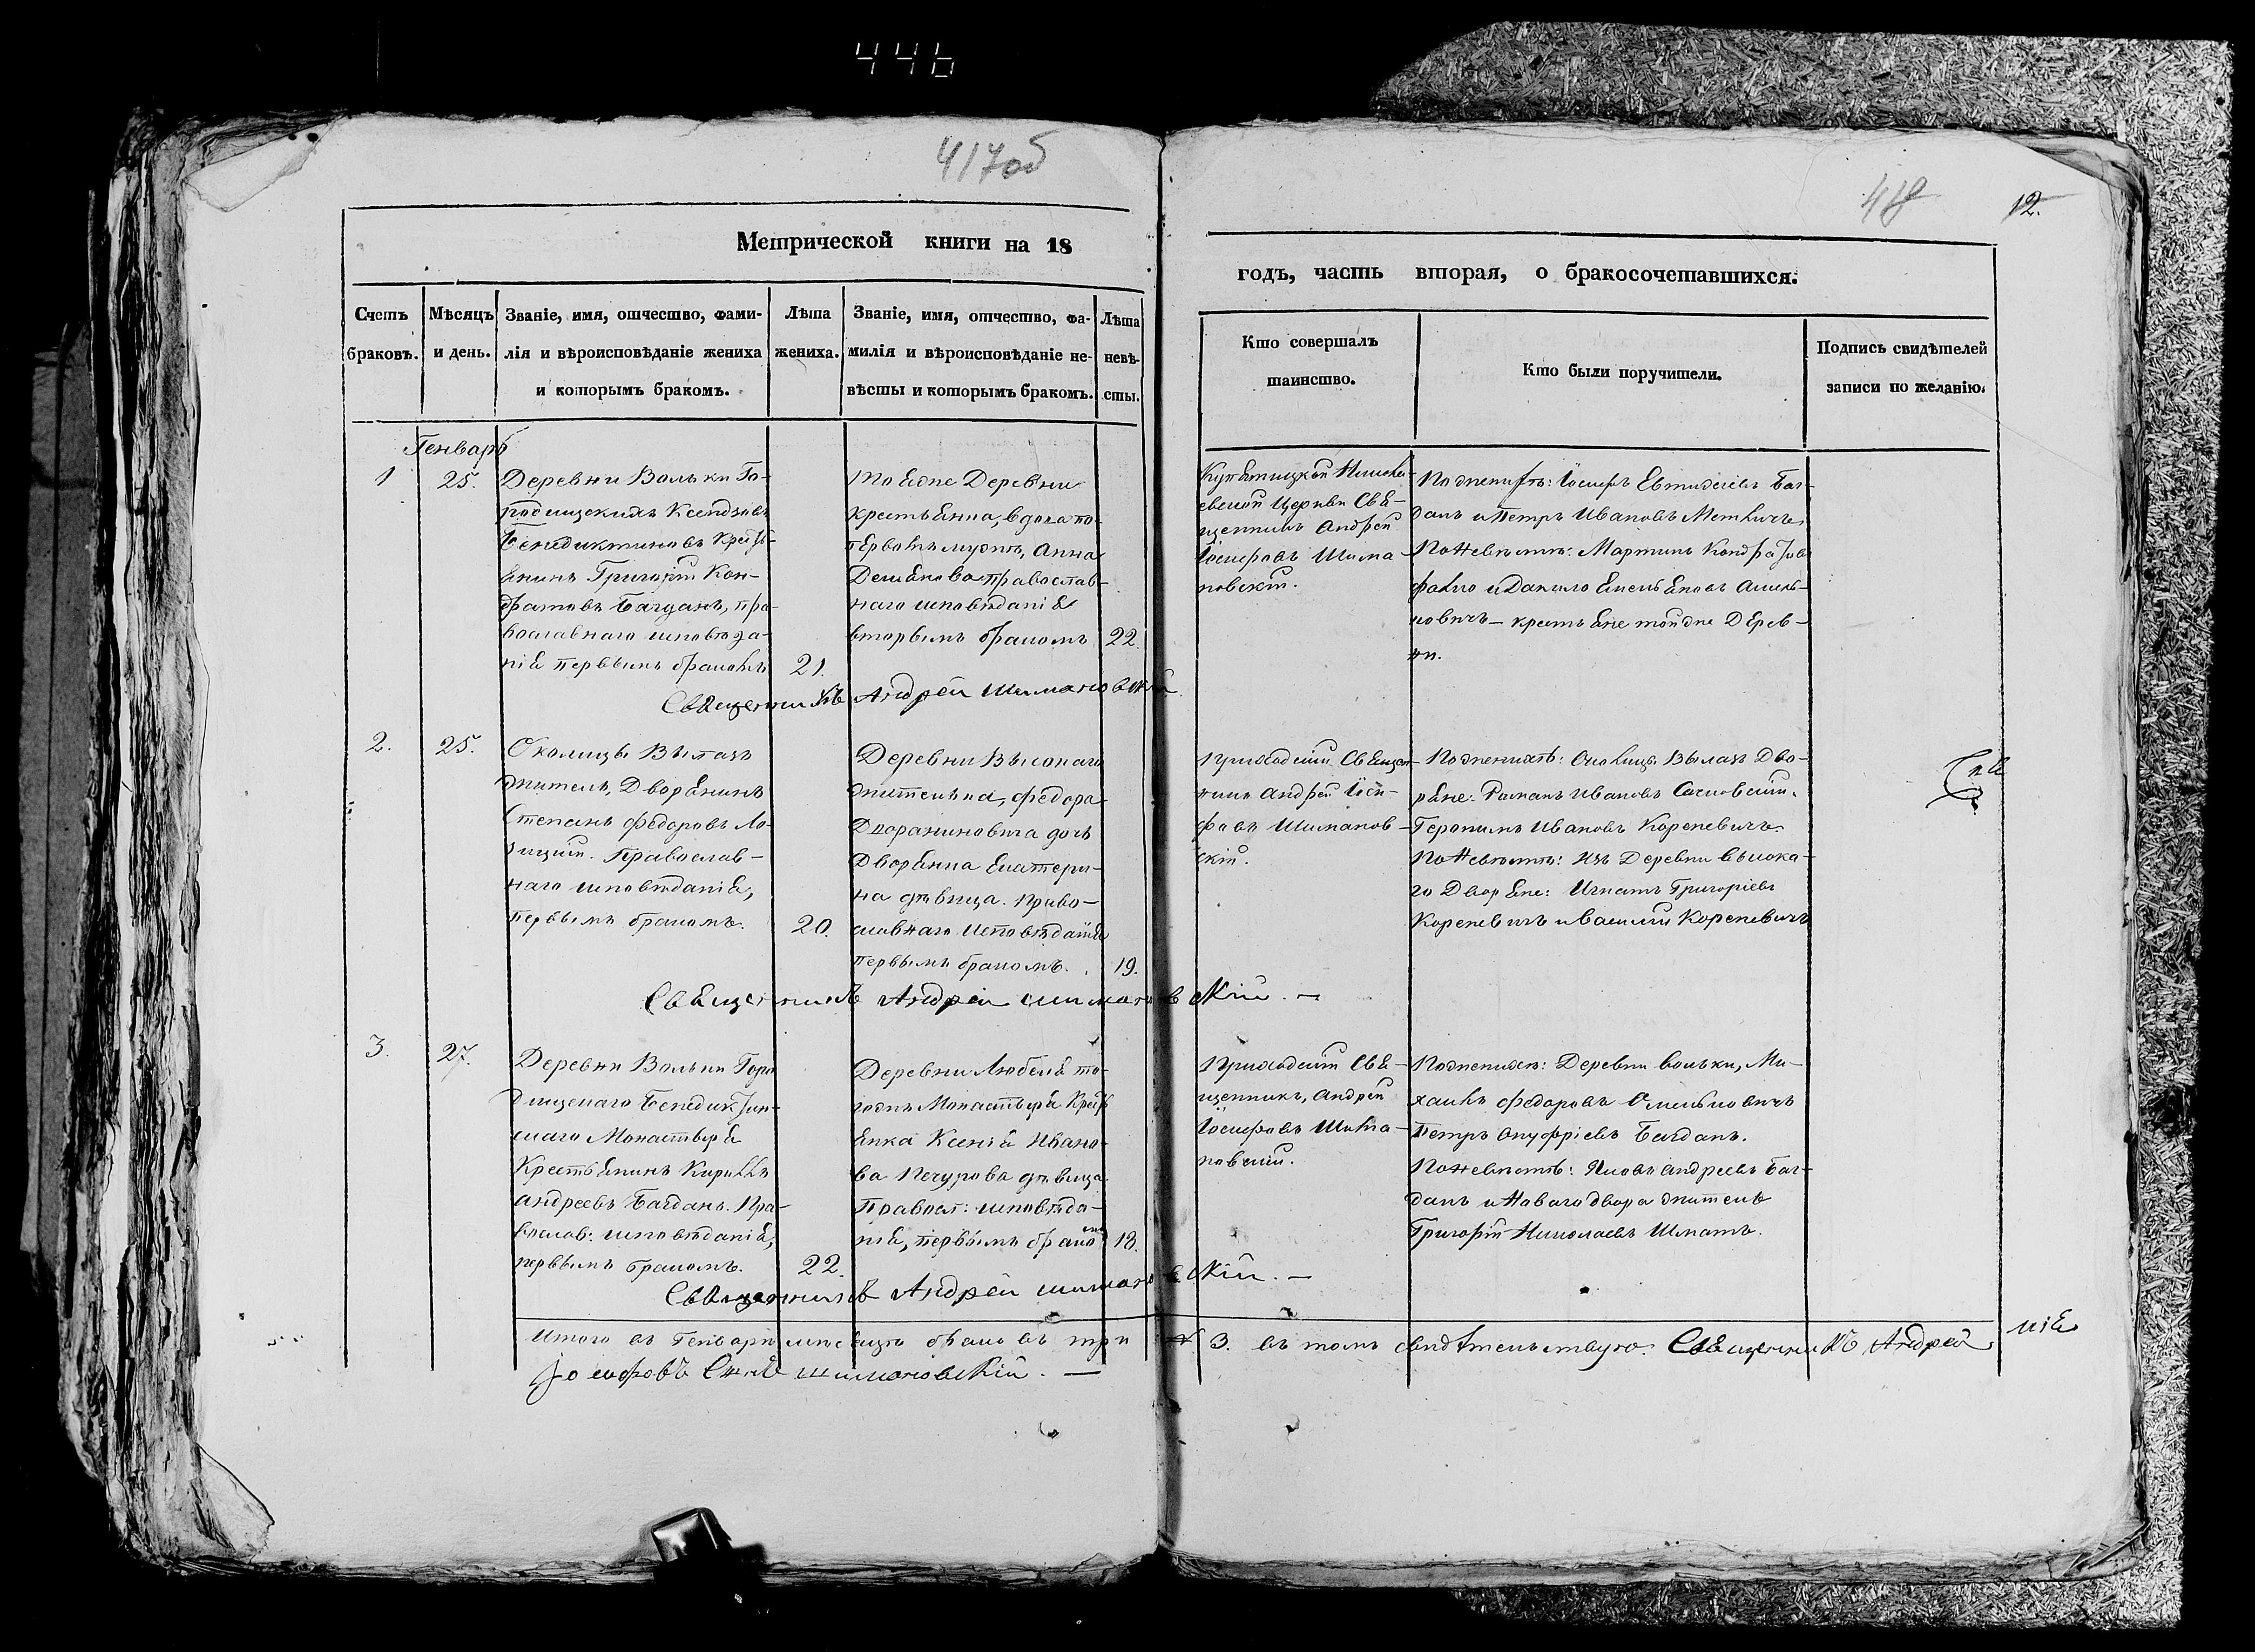 446
417об
418
12.
Метрической книги на 18
годъ, часть вторая, о бракосочетавшихся.
Счетъ
браковъ.
Мѣсяцъ
и день.
Званіе, имя, отчество, фами-
лія и вѣроисповѣданіе жениха
и которымъ бракомъ.
Лѣта
жениха.
Званіе, имя, отчество, фа-
милія и вѣроисповѣданіе не-
вѣсты и которымъ бракомъ.
Лѣта
невѣ-
сты.
Кто совершалъ
таинство.
Кто были поручители.
Подпись свидѣтелей
записи по желанію.
Генварь
1
25.
Деревни Вольки Го-
родищскихъ Ксендзовъ
Бенедиктиновъ Кресть-
янинъ Григорій Кон-
дратовъ Багданъ, пра-
вославнаго исповѣда-
нія первымъ бракомъ
21.
тоядне Деревни
крестьянка, вдова по
первомъ мужѣ, Анна
Демянова православ-
наго исповѣданія
вторымъ бракомъ
22.
Купятицкой Никола-
евской Церкви Свя-
щенникъ Андрей
Іосифовъ Шима-
новскій.
По женихѣ: Іосифъ Евтидіевъ Баг-
данъ и Петръ Ивановъ Меткичъ.
По невѣстѣ: Мартинъ Кондратовъ
и Данило Емельяновъ Омель-
новичъ – крестьяне тойдне Дерев-
ни.
Священникъ Андрей Шимановскій
2.
25.
Околицы Вылазъ
житель, Дворянинъ
Степанъ Федоровъ Ло-
зицкій. Православ-
наго исповѣданія,
первымъ бракомъ.
20.
Деревни Высокаго
жителька, Федора
дочь
Дворянка Екатери-
на дѣвица. Право-
славнаго исповѣданія
первымъ бракомъ.
19.
Приходскій Священ-
никъ Андрей Іоси-
фовъ Шиманов-
скій.
По женихѣ: Околицы Вылазъ Дво-
ряне: Романъ Ивановъ Сачковскій,
Геронимъ Ивановъ Кореневичъ.
По невѣстѣ: изъ Деревни Высока-
го Дворяне: Игнатъ Григоріевъ
Кореневичъ и Василій Кореневичъ
Священникъ Андрей Шимановскій. –
3.
27.
Деревни Вольки Горо
дищскаго Бенедиктин-
скаго Монастыря
Крестьянинъ Кириллъ
Андреевъ Багданъ. Пра-
вослав: исповѣданія,
первымъ бракомъ.
22.
Деревни Любеля то-
годнѣ Монастыря Кресть
янка Ксенія Ивано-
ва Печурова дѣвица.
Правосл: исповѣда-
нія, первымъ бракомъ
18.
Приходскій Свя-
щенникъ, Андрей
Іосифовъ Шима-
новскій.
По женихѣ: Деревни Вольки, Ми-
хаилъ Федоровъ Омельновичъ
Петръ Онуфріевъ Багданъ.
По невѣстѣ: Яковъ Андреевъ Баг-
данъ и Новаго двора житель
Григорій Николаевъ Шматъ.
Священникъ Андрей Шимановскій. –
Итого въ Генварѣ мѣсяцѣ браковъ три 3. въ томъ свидѣтельствую. Священникъ Андрей
Іосифовъ Сынъ Шимановскій. –